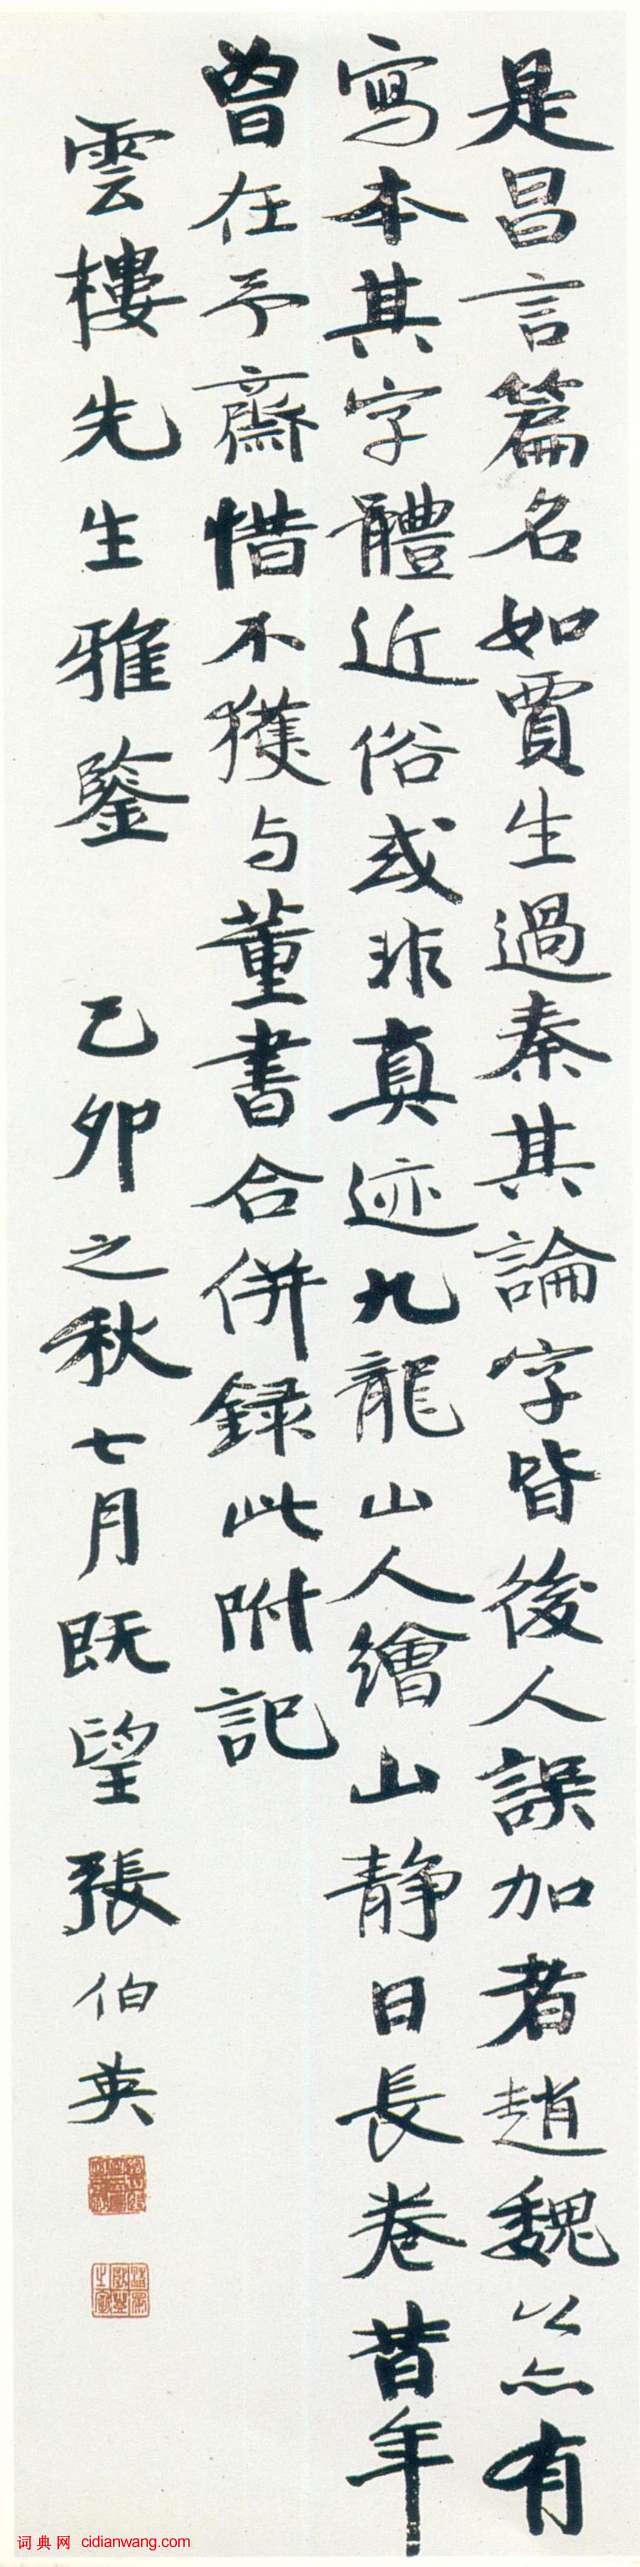 是昌言篇名如賈生過秦其論字皆後人誤加者趙魏公亦有
寫本其字體近俗或非真迹九龍山人繪山静日長卷昔年
曾在予齋惜不獲与董書合併録此附記
雲樓先生雅鑒 乙卯之秋七月既望張伯英
词典网 cidianwang.com